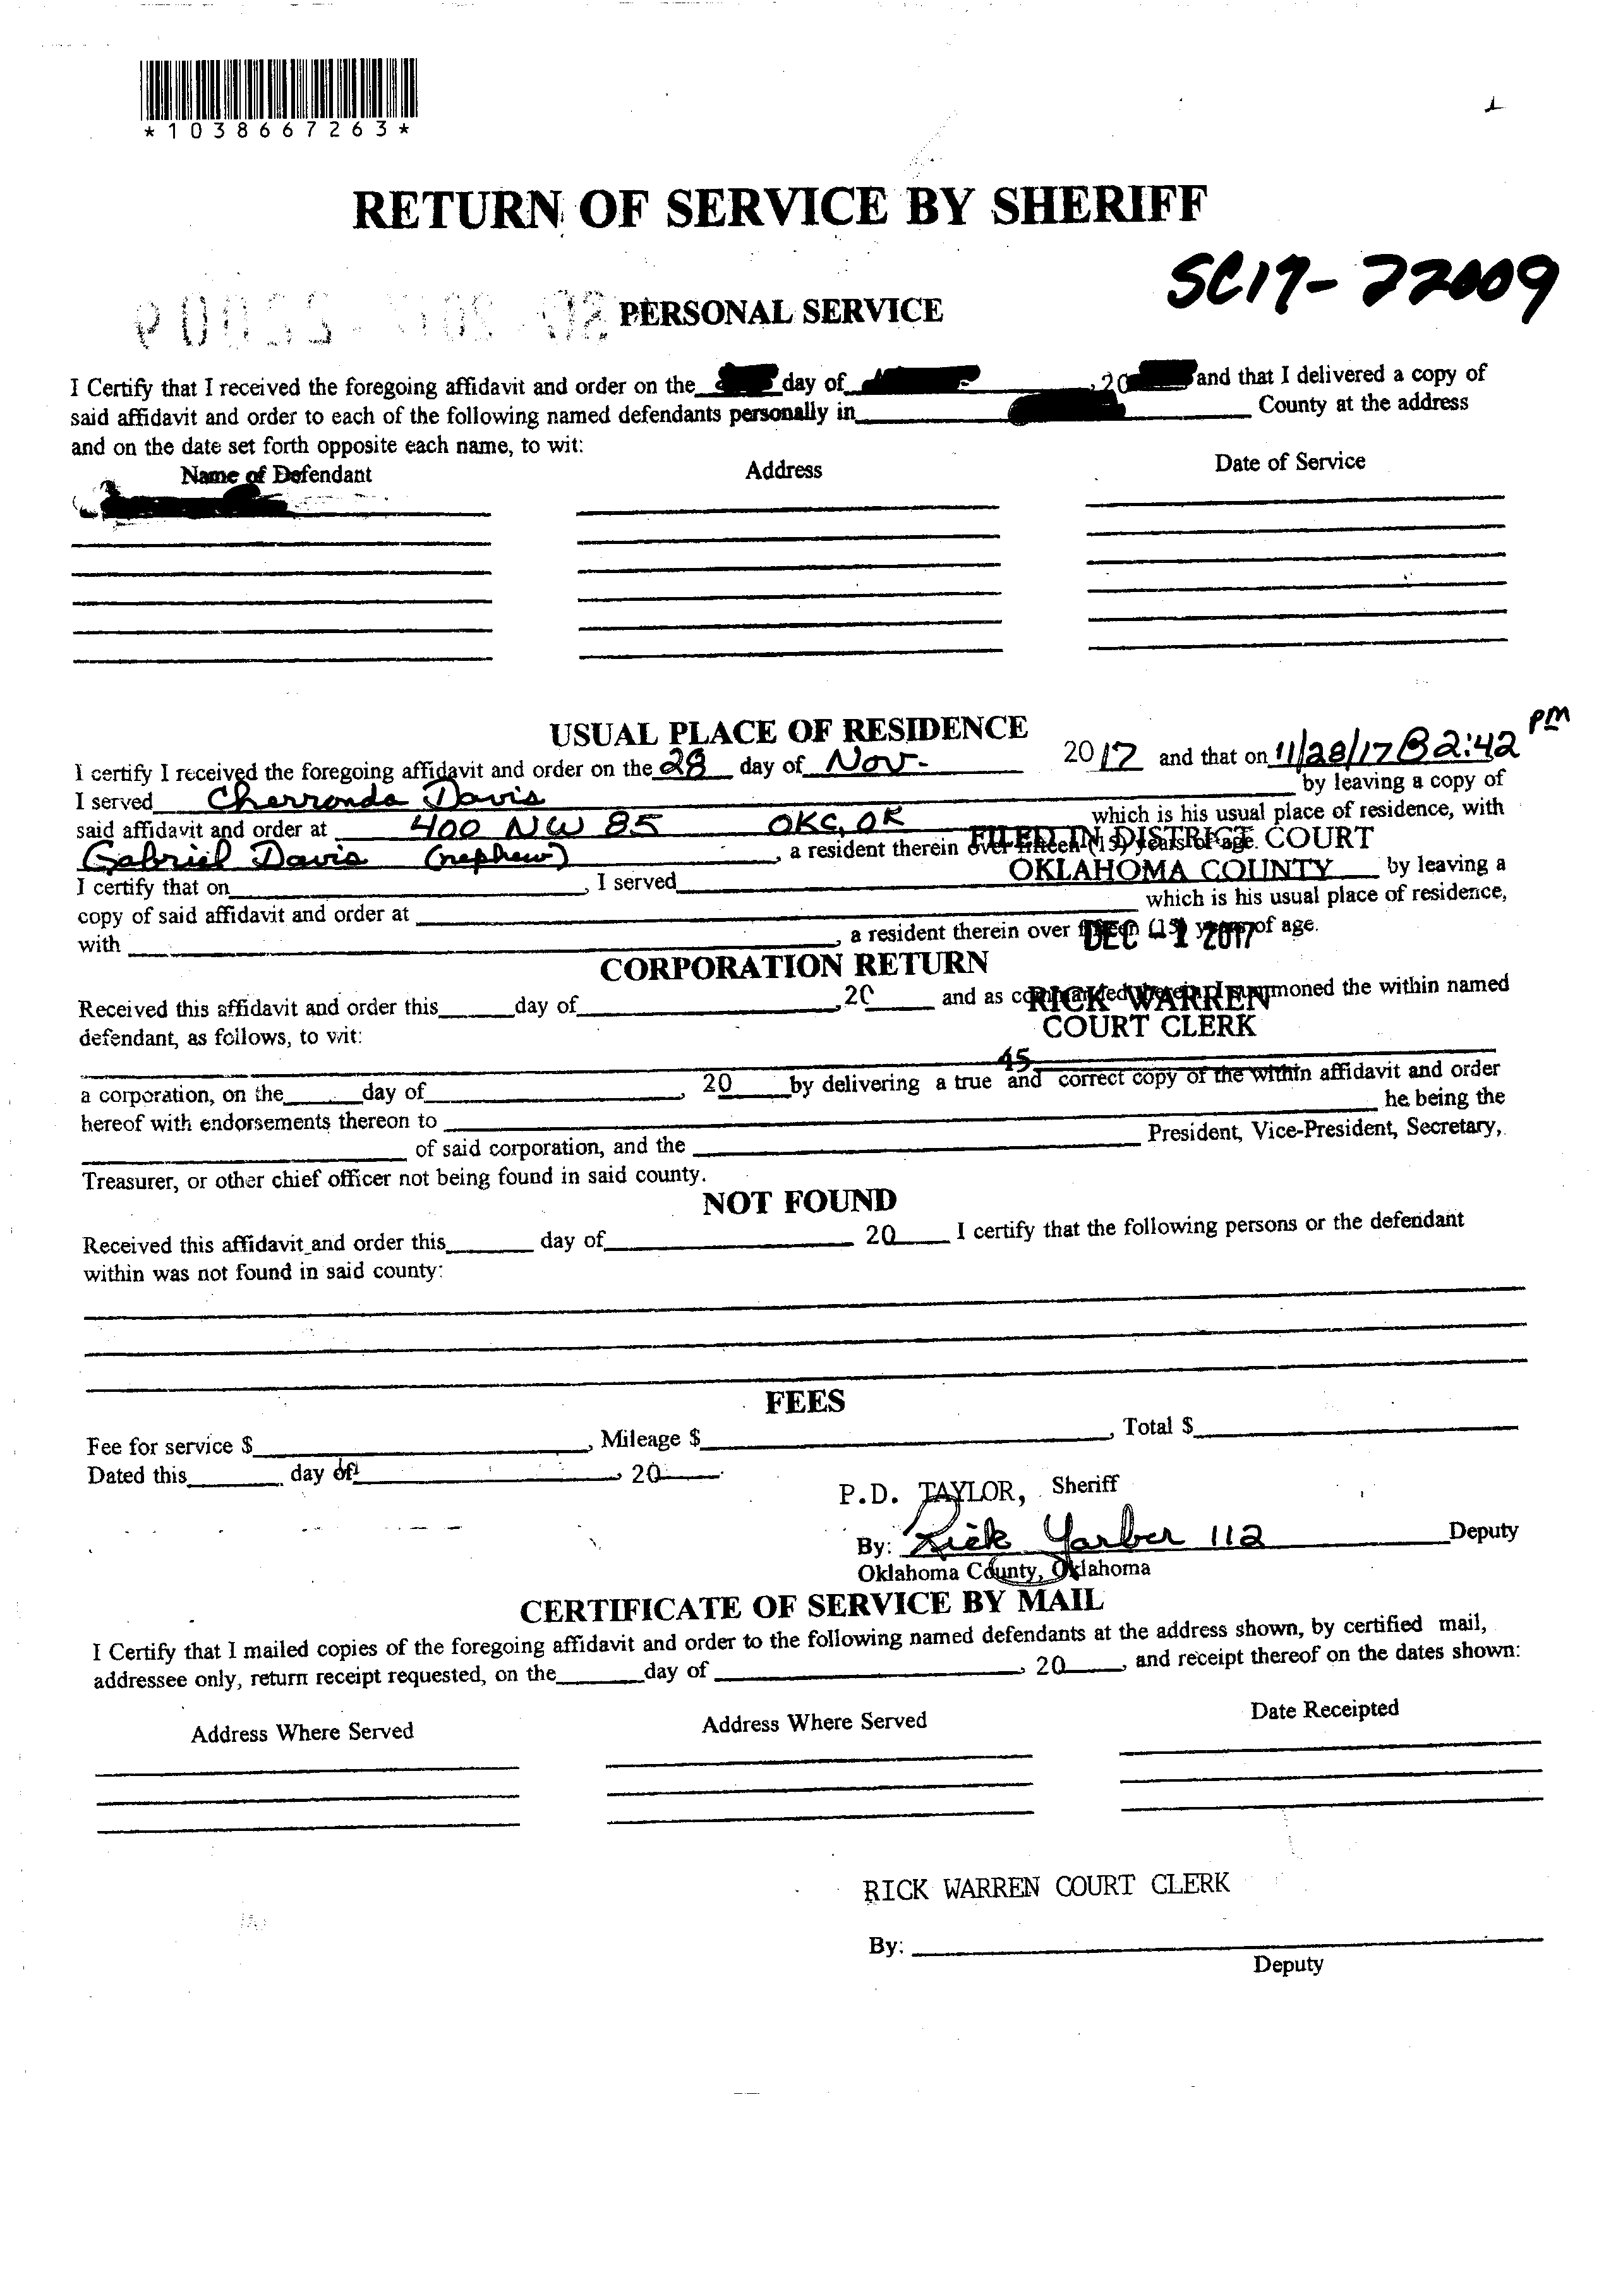 *1038667263*
RETURN OF SERVICE BY SHERIFF
SC17-22009
PERSONAL SERVICE
I Certify that I received the foregoing affidavit and order on the day of , 20 and that I delivered a copy of
said affidavit and order to each of the following named defendants personally in County at the address
and on the date set forth opposite each name, to wit:
Name of Defendant Address Date of Service
USUAL PLACE OF RESIDENCE
I certify I received the foregoing affidavit and order on the 28 day of Nov. 2017 and that on 11/28/17 @ 2:42 PM
I served Cherronda Davis by leaving a copy of
said affidavit and order at 400 NW 85 OKC, OK which is his usual place of residence, with
Gabriel Davis (nephew) , a resident therein over fifteen (15) years of age.
FILED IN DISTRICT COURT
OKLAHOMA COUNTY
I certify that on , I served by leaving a
copy of said affidavit and order at which is his usual place of residence,
with , a resident therein over fifteen (15) years of age.
DEC -1 2017
CORPORATION RETURN
Received this affidavit and order this day of , 20 and as commanded therein I summoned the within named
RICK WARREN
COURT CLERK
defendant, as follows, to wit:
45
a corporation, on the day of , 20 by delivering a true and correct copy of the within affidavit and order
hereof with endorsements thereon to he being the
of said corporation, and the President, Vice-President, Secretary,
Treasurer, or other chief officer not being found in said county.
NOT FOUND
Received this affidavit and order this day of 20 I certify that the following persons or the defendant
within was not found in said county:
FEES
Fee for service $ , Mileage $ , Total $
Dated this day of , 20
P.D. TAYLOR, Sheriff
By: Rick Yarber 112 Deputy
Oklahoma County, Oklahoma
CERTIFICATE OF SERVICE BY MAIL
I Certify that I mailed copies of the foregoing affidavit and order to the following named defendants at the address shown, by certified mail,
addressee only, return receipt requested, on the day of , 20 , and receipt thereof on the dates shown:
Address Where Served Address Where Served Date Receipted
RICK WARREN COURT CLERK
By:
Deputy